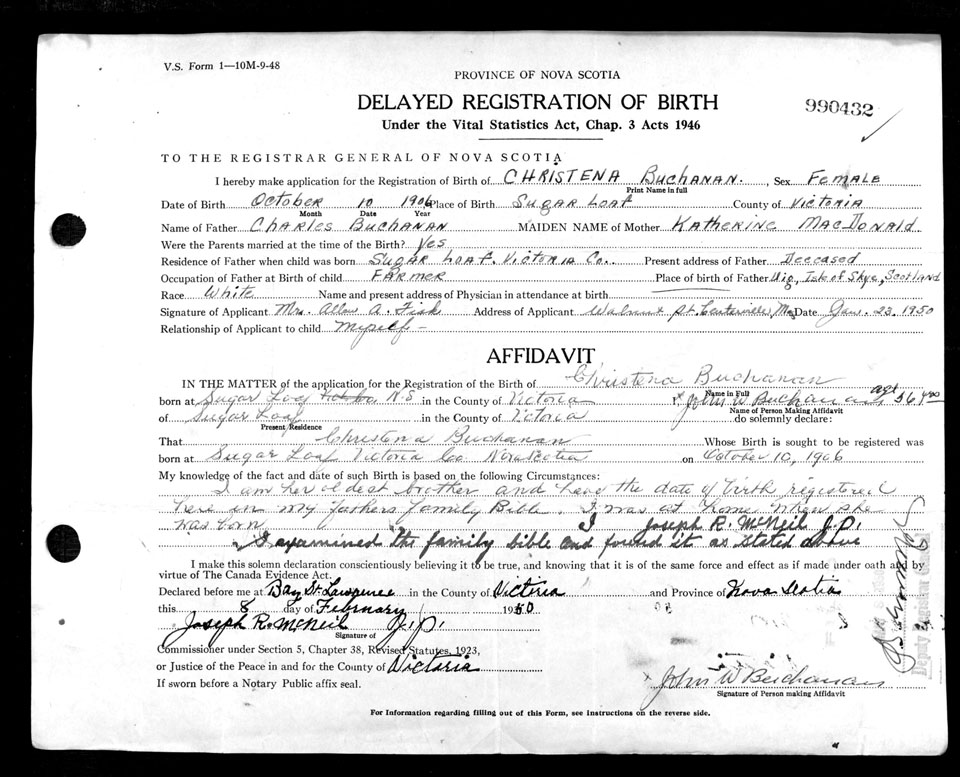 V.S. Form 1—10M-9-48
PROVINCE OF NOVA SCOTIA
DELAYED REGISTRATION OF BIRTH
990432
Under the Vital Statistics Act, Chap. 3 Acts 1946
TO THE REGISTRAR GENERAL OF NOVA SCOTIA
I hereby make application for the Registration of Birth of CHRISTENA BUCHANAN. , Sex FEMALE
Print Name in full
Date of Birth OCTOBER 10 1906 Place of Birth SUGAR LOAF County of VICTORIA
Month Date Year
Name of Father CHARLES BUCHANAN MAIDEN NAME of Mother KATHERINE MACDONALD
Were the Parents married at the time of the Birth? Yes
Residence of Father when child was born SUGAR LOAF. VICTORIA Co. Present address of Father Deceased
Occupation of Father at Birth of child FARMER Place of birth of Father Uig, Isle of Skye, Scotland
Race White Name and present address of Physician in attendance at birth
Signature of Applicant Mrs. Allan A. Fisk Address of Applicant Walnut St. Centerville, Mass Date Jan. 23, 1950
Relationship of Applicant to child Myself -
AFFIDAVIT
IN THE MATTER of the application for the Registration of the Birth of Christena Buchanan
Name in Full
born at Sugar Loaf N.S in the County of Victoria I John W Buchanan age 56 yrs
Name of Person Making Affidavit
of Sugar Loaf in the County of Victoria do solemnly declare:
Present Residence
That Christena Buchanan Whose Birth is sought to be registered was
born at Sugar Loaf Victoria Co Nova Scotia on October 10, 1906
My knowledge of the fact and date of such Birth is based on the following Circumstances:
I am her oldest brother and have the date of birth registered
here in my fathers family Bible. I was at home when she
was born I Joseph R. McNeil J.P.
I examined the family bible and found it as stated above
I make this solemn declaration conscientiously believing it to be true, and knowing that it is of the same force and effect as if made under oath and by
virtue of The Canada Evidence Act.
Declared before me at Bay St. Lawrence in the County of Victoria and Province of Nova Scotia
this 8 day of February 1950
Joseph R. McNeil J.P.
Signature of
Commissioner under Section 5, Chapter 38, Revised Statutes, 1923,
or Justice of the Peace in and for the County of Victoria
If sworn before a Notary Public affix seal.
John W Buchanan
Signature of Person making Affidavit
For Information regarding filling out of this Form, see Instructions on the reverse side.